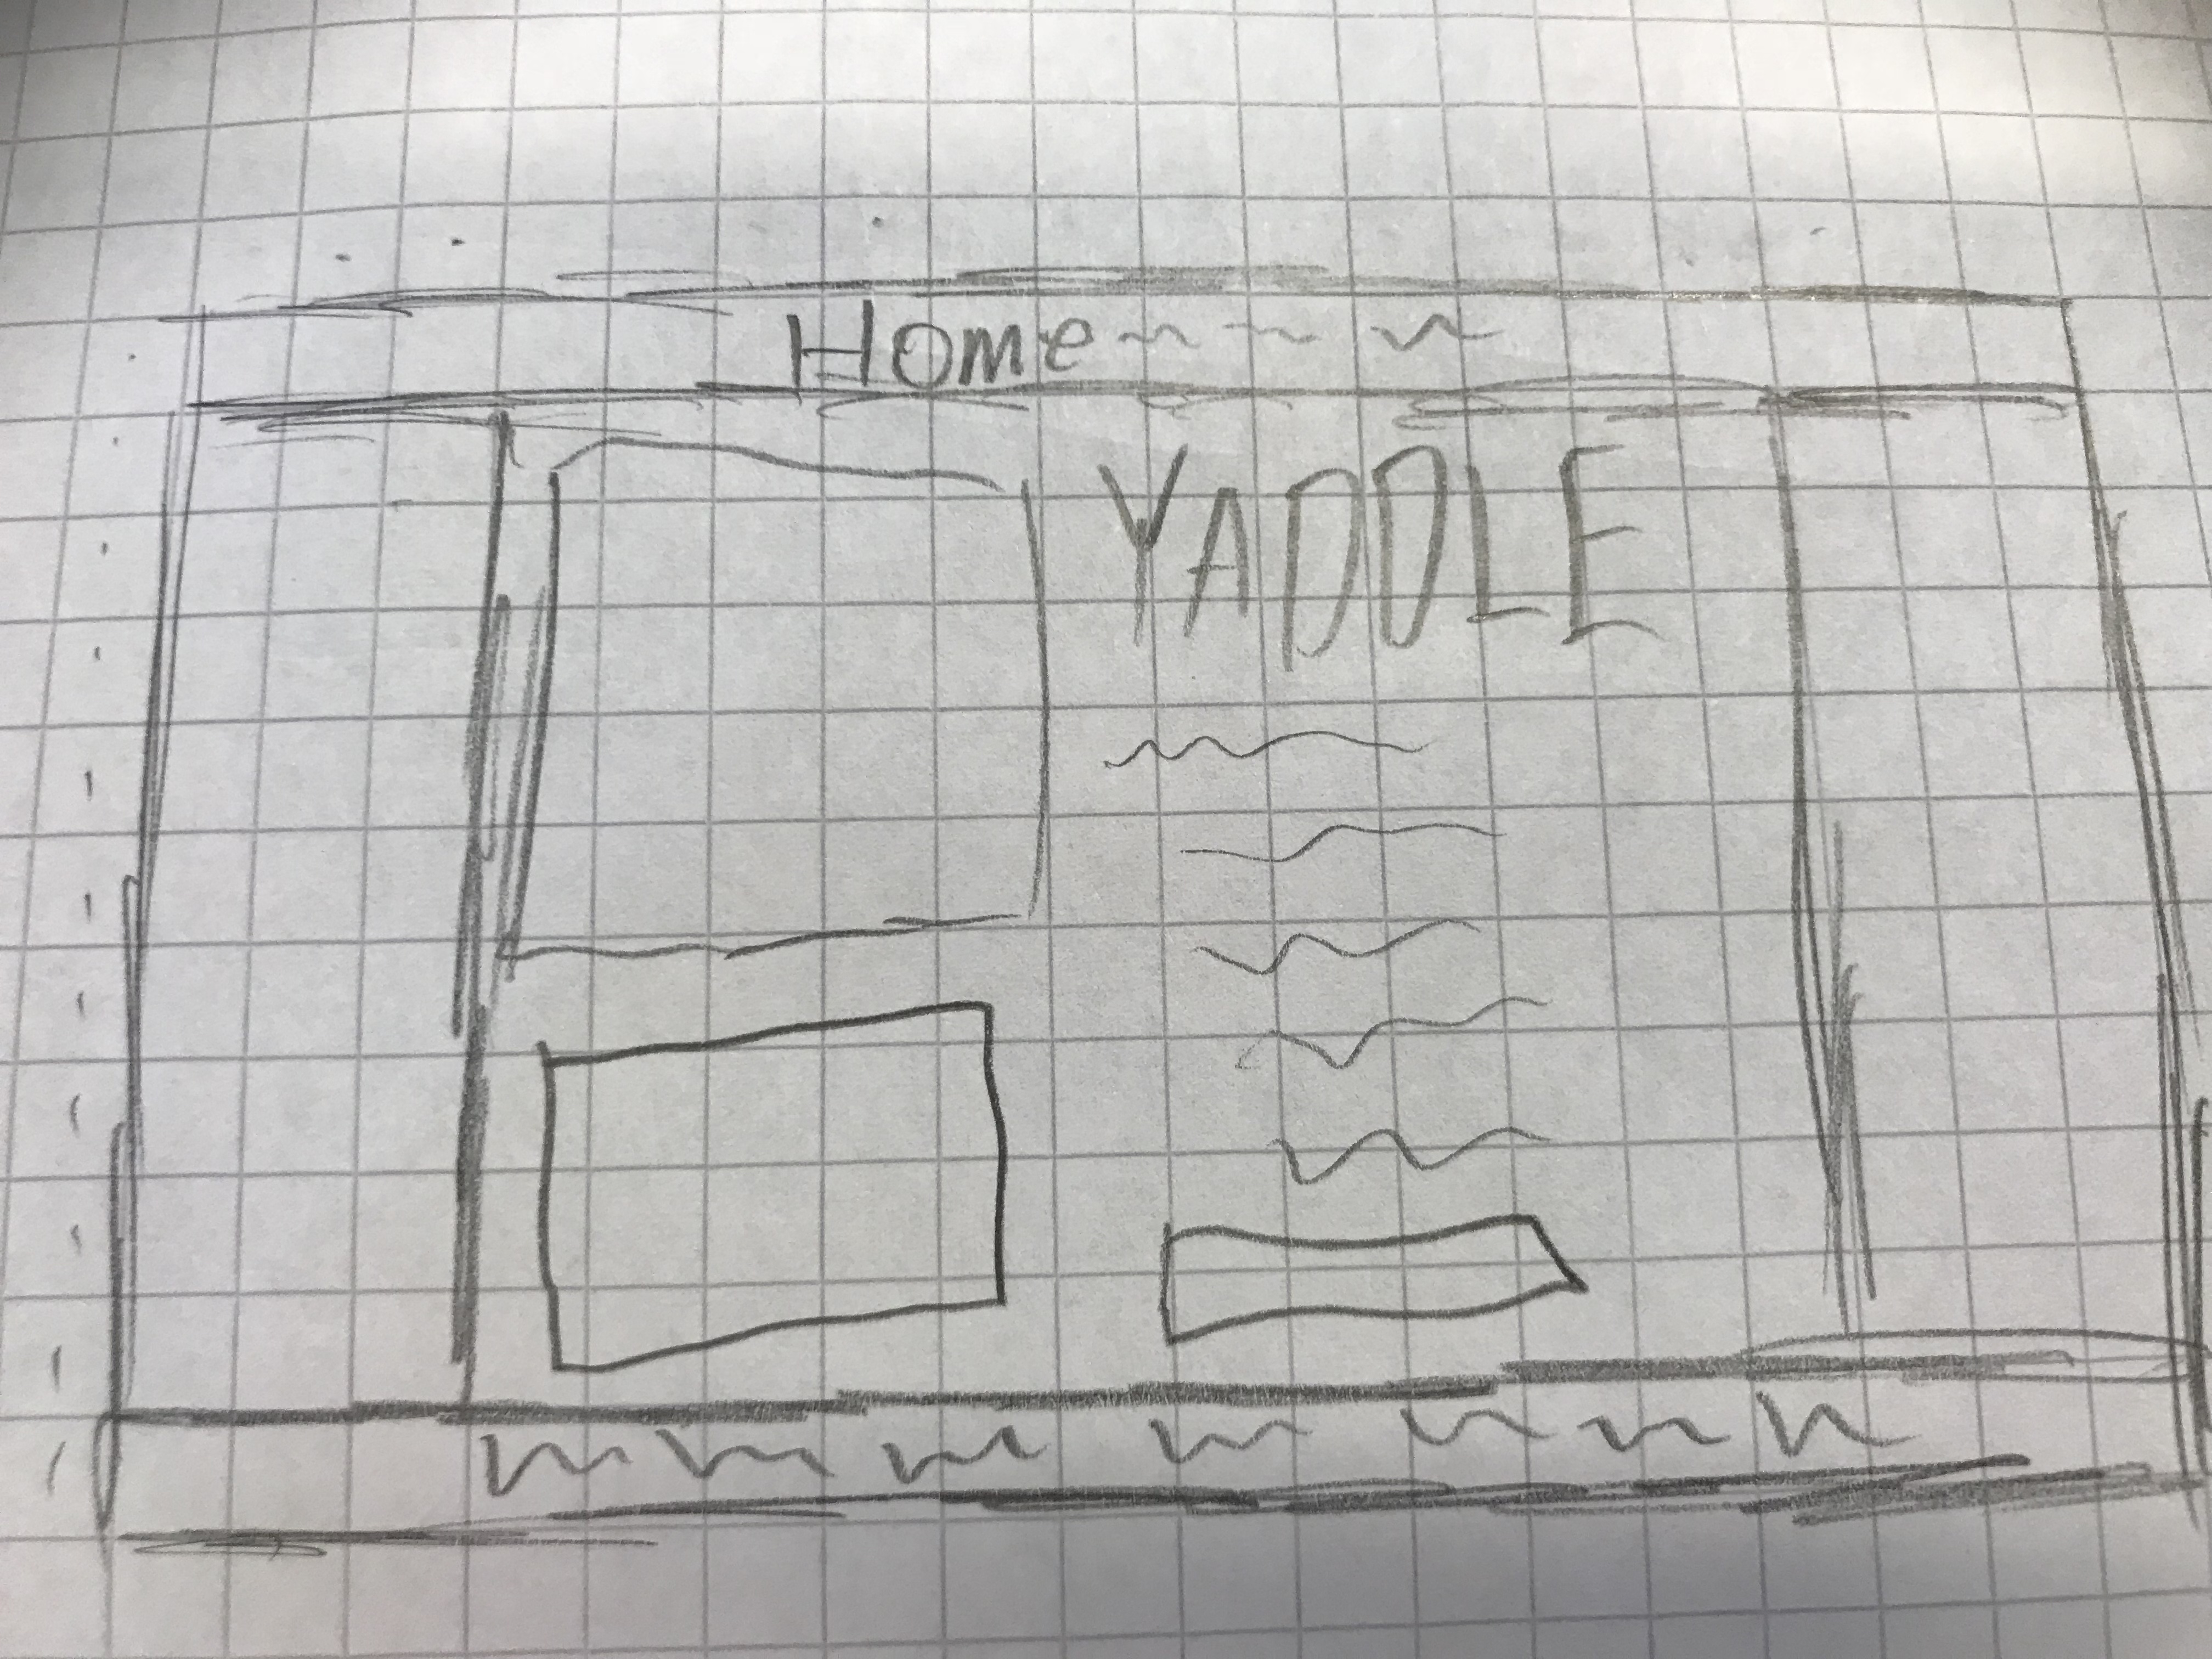 Home
YADDLE